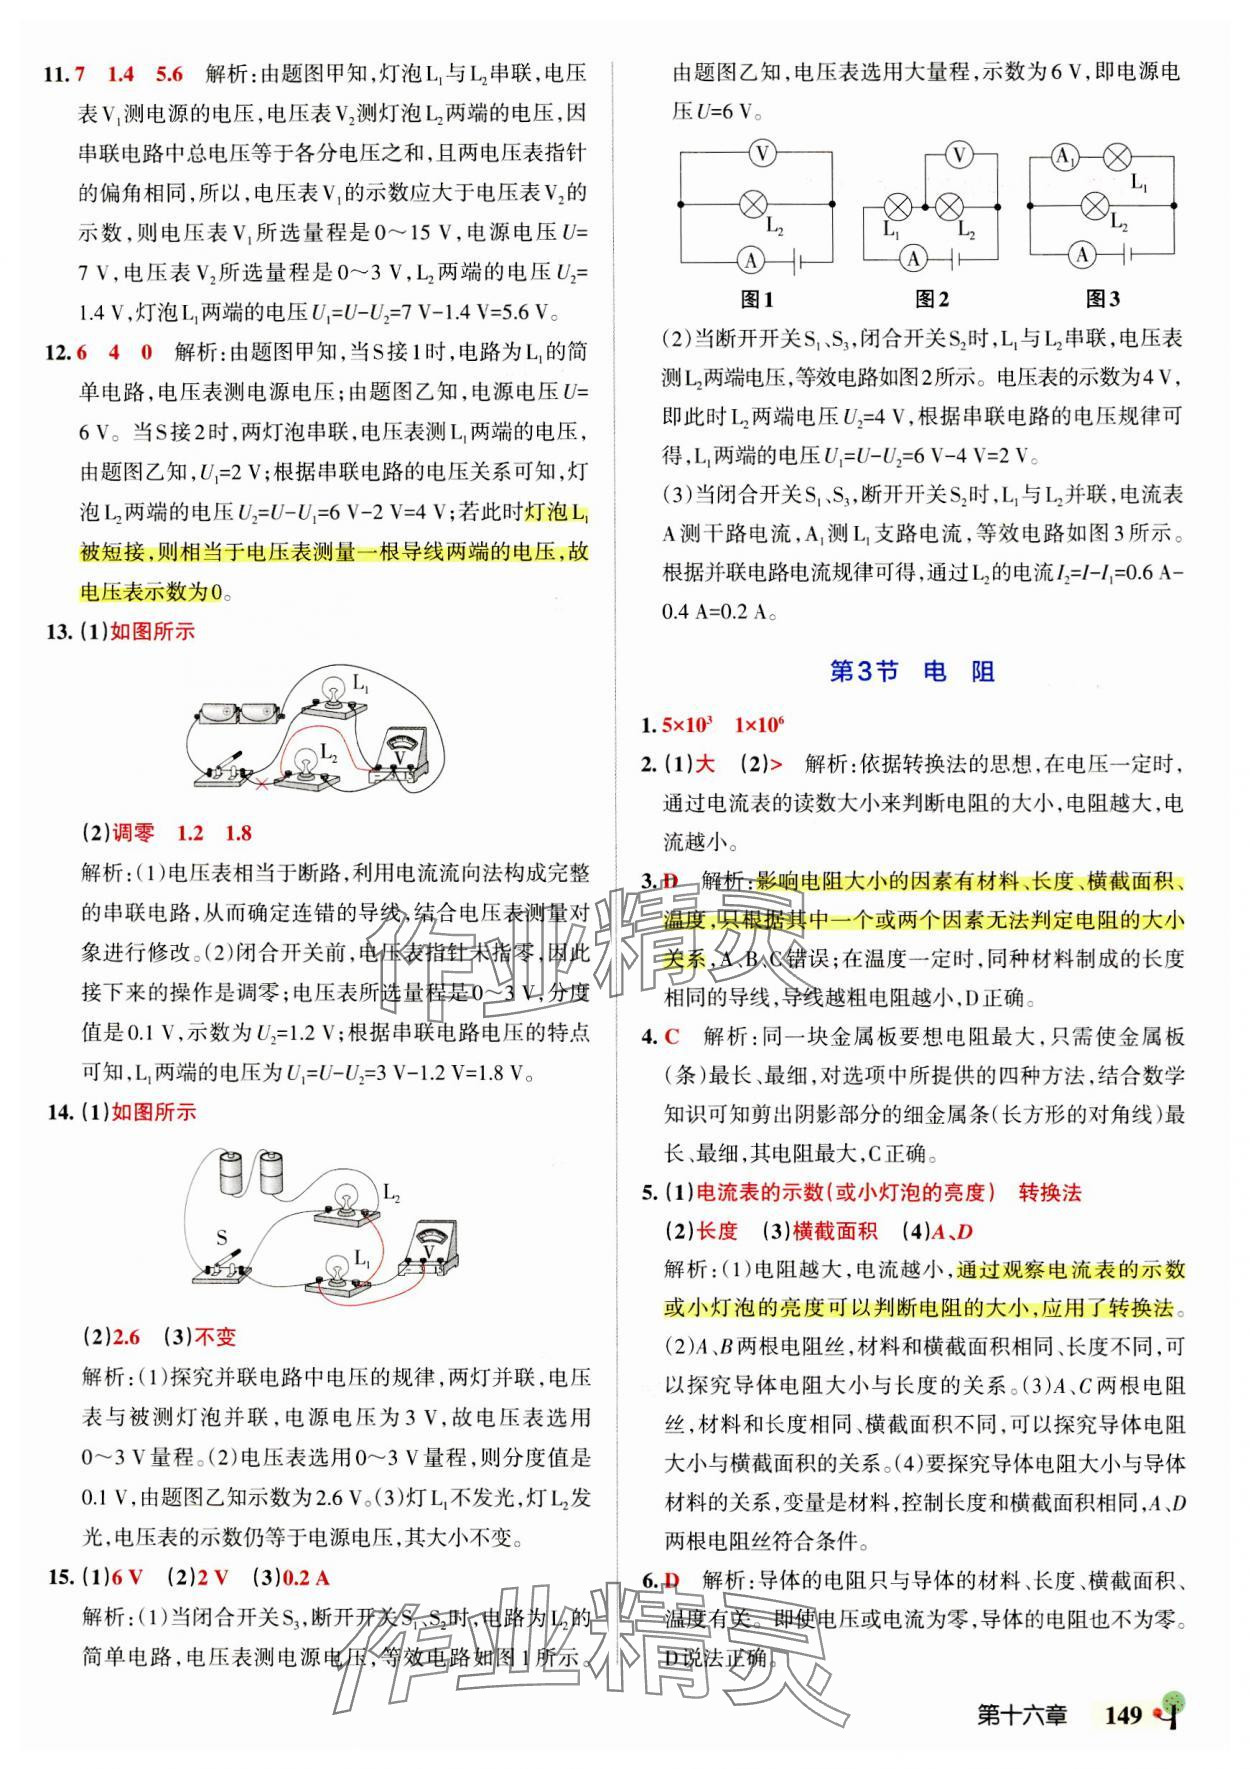 11. 7 1.4 5.6 解析:由题图甲知,灯泡L₁与L₂串联,电压
表V₁测电源的电压,电压表V₂测灯泡L₂两端的电压,因
串联电路中总电压等于各分电压之和,且两电压表指针
的偏角相同,所以,电压表V₁的示数应大于电压表V₂的
示数,则电压表V₁所选量程是0~15 V,电源电压U=
7 V,电压表V₂所选量程是0~3 V,L₂两端的电压U₂=
1.4 V,灯泡L₁两端的电压U₁=U-U₂=7 V-1.4 V=5.6 V。
12. 6 4 0 解析:由题图甲知,当S接1时,电路为L₁的简
单电路,电压表测电源电压;由题图乙知,电源电压U=
6 V。当S接2时,两灯泡串联,电压表测L₁两端的电压,
由题图乙知,U₁=2 V;根据串联电路的电压关系可知,灯
泡L₂两端的电压U₂=U-U₁=6 V-2 V=4 V;若此时灯泡L₁
被短接,则相当于电压表测量一根导线两端的电压,故
电压表示数为0。
13. (1)如图所示
L₁
L₂
V
(2)调零 1.2 1.8
解析:(1)电压表相当于断路,利用电流流向法构成完整
的串联电路,从而确定连错的导线,结合电压表测量对
象进行修改。(2)闭合开关前,电压表指针未指零,因此
接下来的操作是调零;电压表所选量程是0~3 V,分度
值是0.1 V,示数为U₂=1.2 V;根据串联电路电压的特点
可知,L₁两端的电压为U₁=U-U₂=3 V-1.2 V=1.8 V。
14. (1)如图所示
L₂
S
L₁
V
- 3 15
(2)2.6 (3)不变
解析:(1)探究并联电路中电压的规律,两灯并联,电压
表与被测灯泡并联,电源电压为3 V,故电压表选用
0~3 V量程。(2)电压表选用0~3 V量程,则分度值是
0.1 V,由题图乙知示数为2.6 V。(3)灯L₁不发光,灯L₂发
光,电压表的示数仍等于电源电压,其大小不变。
15. (1)6 V (2)2 V (3)0.2 A
解析:(1)当闭合开关S₃,断开开关S₁、S₂时,电路为L₂的
简单电路,电压表测电源电压,等效电路如图1所示。
由题图乙知,电压表选用大量程,示数为6 V,即电源电
压U=6 V。
V
L₂
A
图1
V
L₁ L₂
A
图2
A₁
L₁
L₂
A
图3
(2)当断开开关S₁、S₃,闭合开关S₂时,L₁与L₂串联,电压表
测L₂两端电压,等效电路如图2所示。电压表的示数为4 V,
即此时L₂两端电压U₂=4 V,根据串联电路的电压规律可
得,L₁两端的电压U₁=U-U₂=6 V-4 V=2 V。
(3)当闭合开关S₁、S₃,断开开关S₂时,L₁与L₂并联,电流表
A测干路电流,A₁测L₁支路电流,等效电路如图3所示。
根据并联电路电流规律可得,通过L₂的电流I₂=I-I₁=0.6 A-
0.4 A=0.2 A。
第3节 电 阻
1. 5×10³ 1×10⁶
2. (1)大 (2)> 解析:依据转换法的思想,在电压一定时,
通过电流表的读数大小来判断电阻的大小,电阻越大,电
流越小。
3. D 解析:影响电阻大小的因素有材料、长度、横截面积、
温度,只根据其中一个或两个因素无法判定电阻的大小
关系,A、B、C错误;在温度一定时,同种材料制成的长度
相同的导线,导线越粗电阻越小,D正确。
4. C 解析:同一块金属板要想电阻最大,只需使金属板
(条)最长、最细,对选项中所提供的四种方法,结合数学
知识可知剪出阴影部分的细金属条(长方形的对角线)最
长、最细,其电阻最大,C正确。
5. (1)电流表的示数(或小灯泡的亮度) 转换法
(2)长度 (3)横截面积 (4)A、D
解析:(1)电阻越大,电流越小,通过观察电流表的示数
或小灯泡的亮度可以判断电阻的大小,应用了转换法。
(2)A、B两根电阻丝,材料和横截面积相同、长度不同,可
以探究导体电阻大小与长度的关系。(3)A、C两根电阻
丝,材料和长度相同、横截面积不同,可以探究导体电阻
大小与横截面积的关系。(4)要探究导体电阻大小与导体
材料的关系,变量是材料,控制长度和横截面积相同,A、D
两根电阻丝符合条件。
6. D 解析:导体的电阻只与导体的材料、长度、横截面积、
温度有关。即使电压或电流为零,导体的电阻也不为零。
D说法正确。
作业精灵
作业精灵
第十六章 149